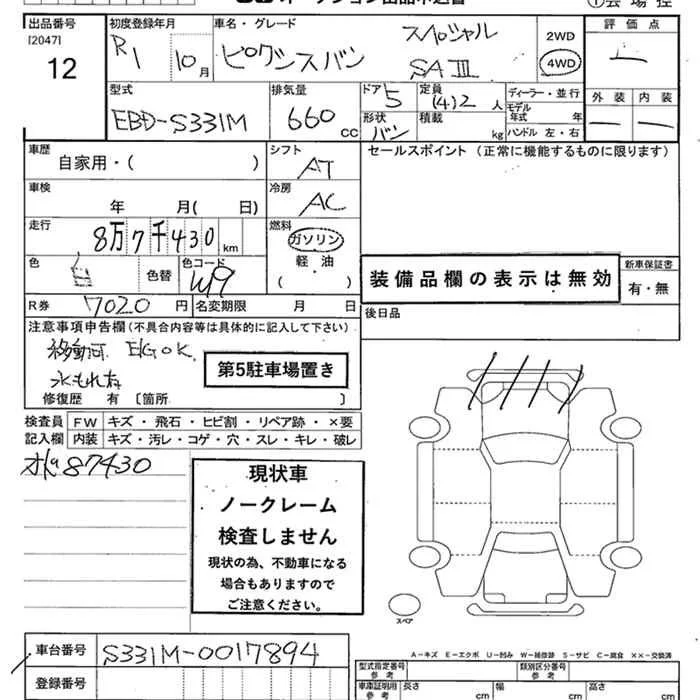 ①会場控
出品番号 初度登録年月 車名・グレード 評価点
[2047]
12
R1 10月 ピクシスバン スペシャル SAⅢ 2WD 4WD
型式 排気量 ドア 定員 ディーラー・並行 外装 内装
EBD-S331M 660 CC 5 (4)2人 モデル年式 年
形状 バン 積載 kg ハンドル 左・右
車歴 シフト セールスポイント (正常に機能するものに限ります)
自家用・( ) AT
車検 冷房
年 月( 日) AC
走行 燃料
8万7千430km ガソリン
軽・油
( )
色 色替 色コード W9
装備品欄の表示は無効
新車保証書
有・無
R券 7020円 名変期限 月 日
後日品
注意事項申告欄(不具合内容等は具体的に記入して下さい)
移動可 E/G OK
水もれ有
第5駐車場置き
修復歴 有 〔箇所 〕
検査員 FW キズ・飛石・ヒビ割・リペア跡・×要
記入欄 内装 キズ・汚レ・コゲ・穴・スレ・キレ・破レ
87430
現状車
ノークレーム
検査しません
現状の為、不動車になる
場合もありますので
ご注意ください。
スペア
A-キズ E-エクボ U-凹み W-補修跡 S-サビ C-腐食 ××-交換済
車台番号 S331M-0017894
登録番号
型式指定番号 参考 類別区分番号 参考
車庫証明用 参考 長さ cm 幅 cm 高さ cm